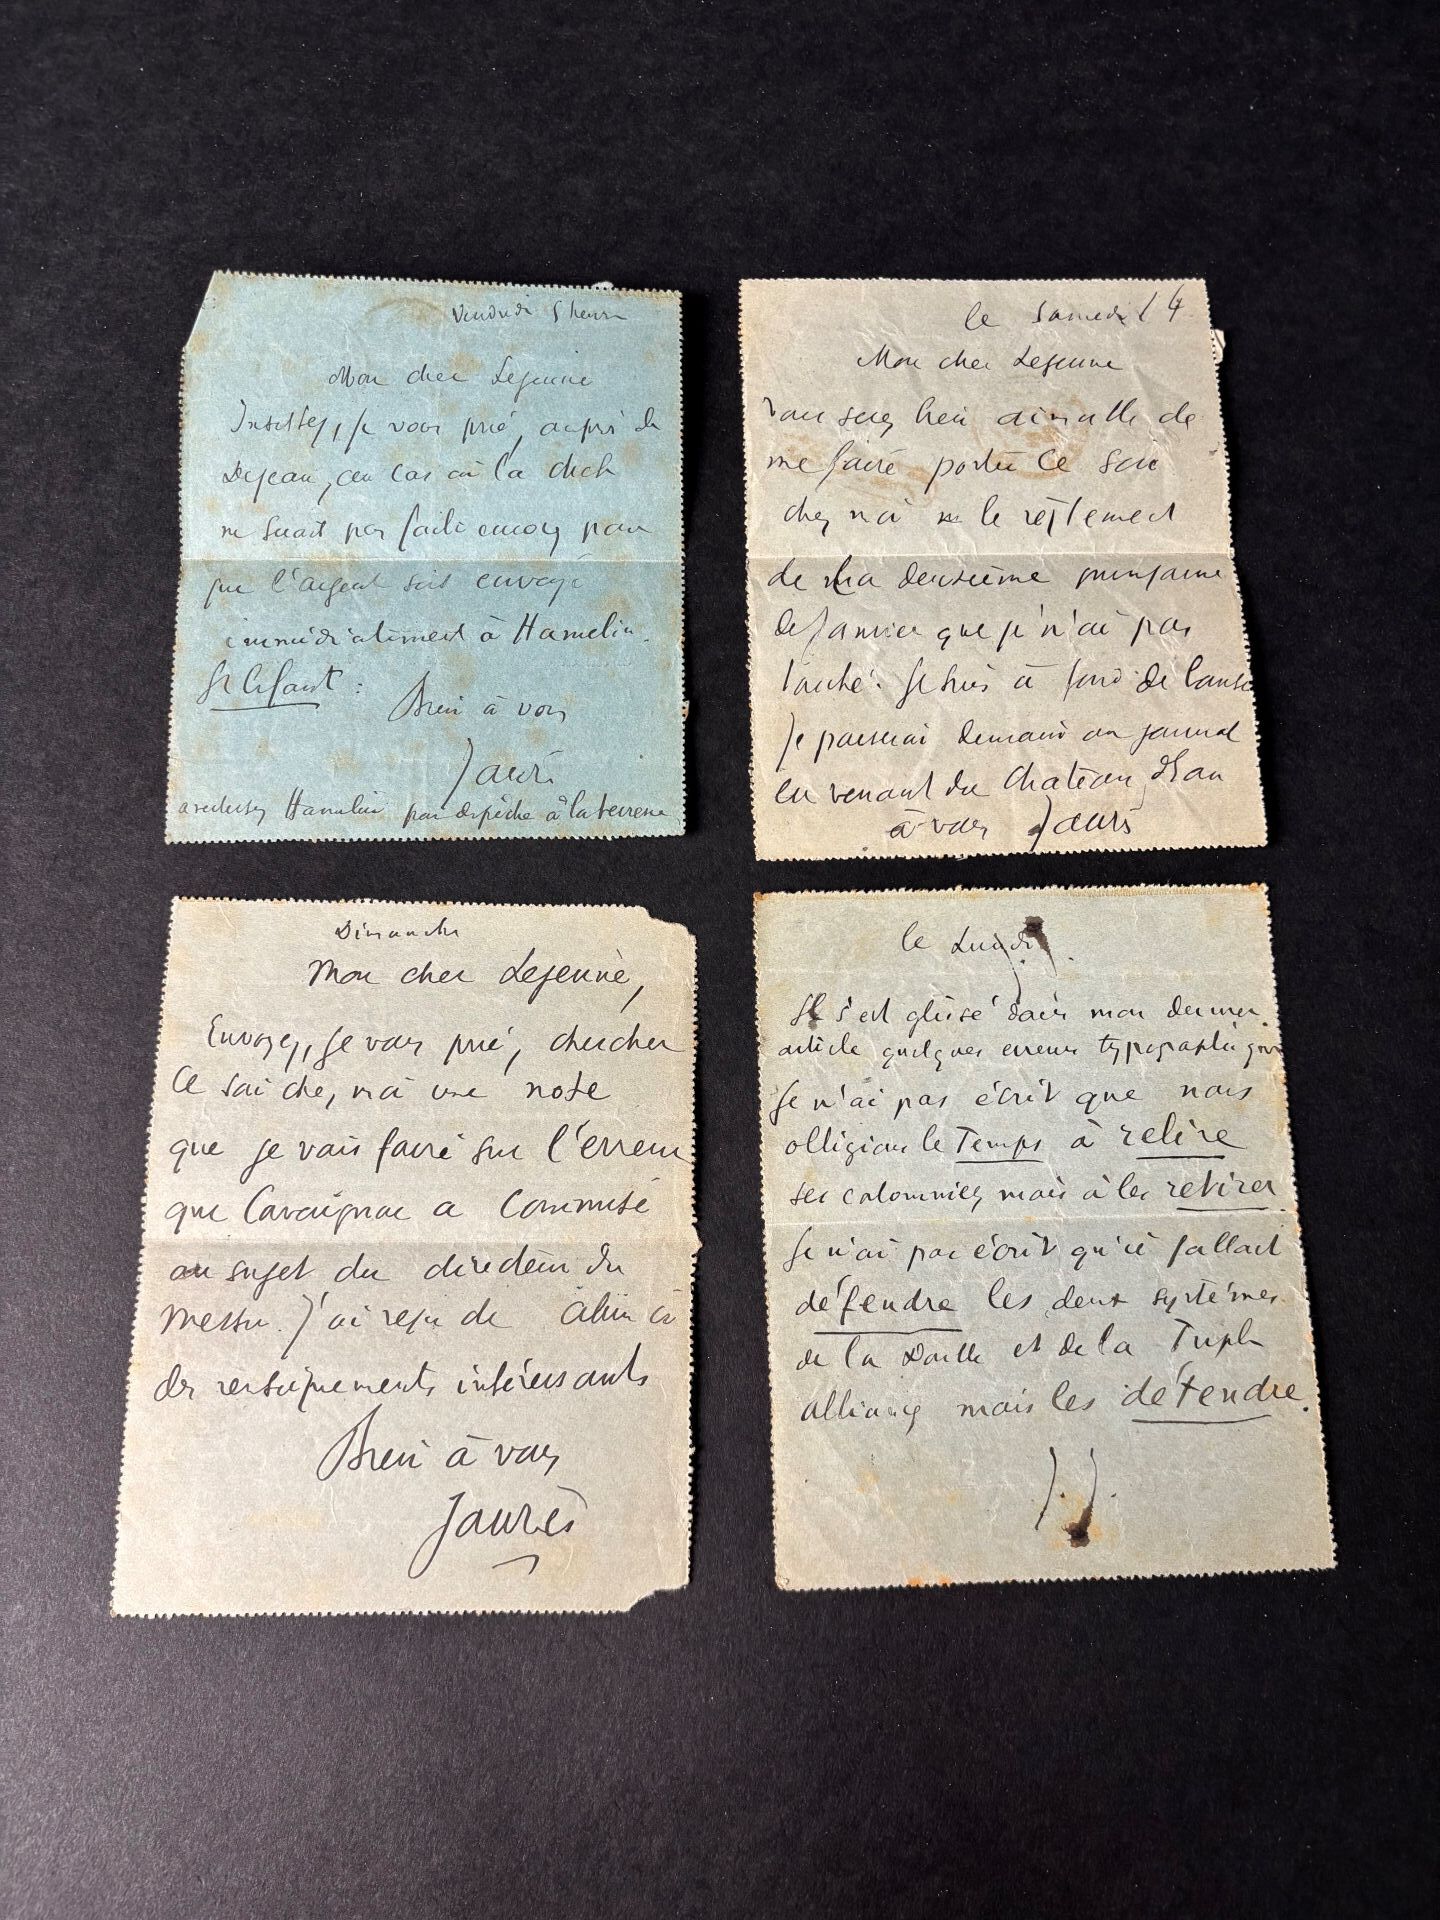 Vendredi 5 heures
Mon cher Lejeune
Insistez, je vous prie, auprès de
Dejean, au cas où la chose
ne serait pas faite encore pour
que l'argent soit envoyé
immédiatement à Hamelin.
Il le faut :
Bien à vous
Jaurès
avertissez Hamelin par dépêche à la
le Samedi 14
Mon cher Lejeune
Vous serez bien aimable de
me faire porter ce soir
chez moi le règlement
de la deuxième quinzaine
de Janvier que je n'ai pas
touché. Je suis à fond de
Je passerai demain au journal
en venant du Chateau d'eau
à vous Jaurès
Dimanche
Mon cher Lejeune,
Envoyez, je vous prie, chercher
ce soir chez moi une note
que je vais faire sur l'erreur
que Cavaignac a commise
au sujet du directeur du
J'ai reçu de
des renseignements intéressants
Bien à vous
Jaurès
le Lundi
Il s'est glissé dans mon dernier
article quelques erreurs typographiques
Je n'ai pas écrit que nous
obligions le Temps à relire
ses calomnies mais à les retirer.
Je n'ai pas écrit qu'il fallait
défendre les deux systèmes
de la Double et de la Triple
alliance mais les détendre.
J. J.